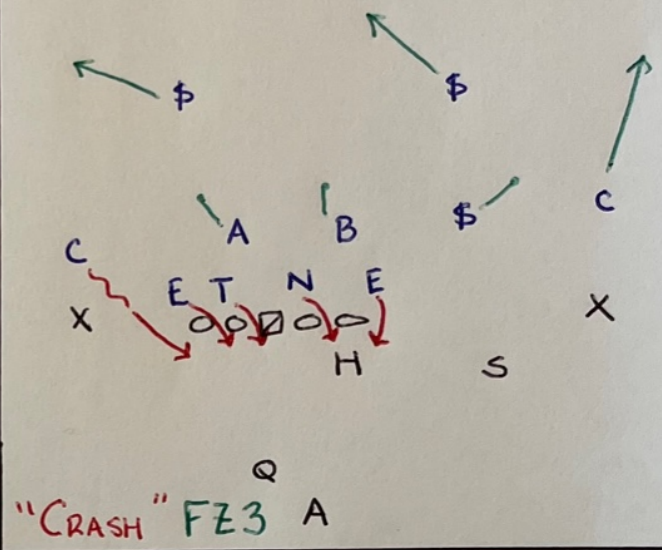 $ $
C
A B $
C
E T N E
X X
H S
Q
"CRASH" FZ3 A